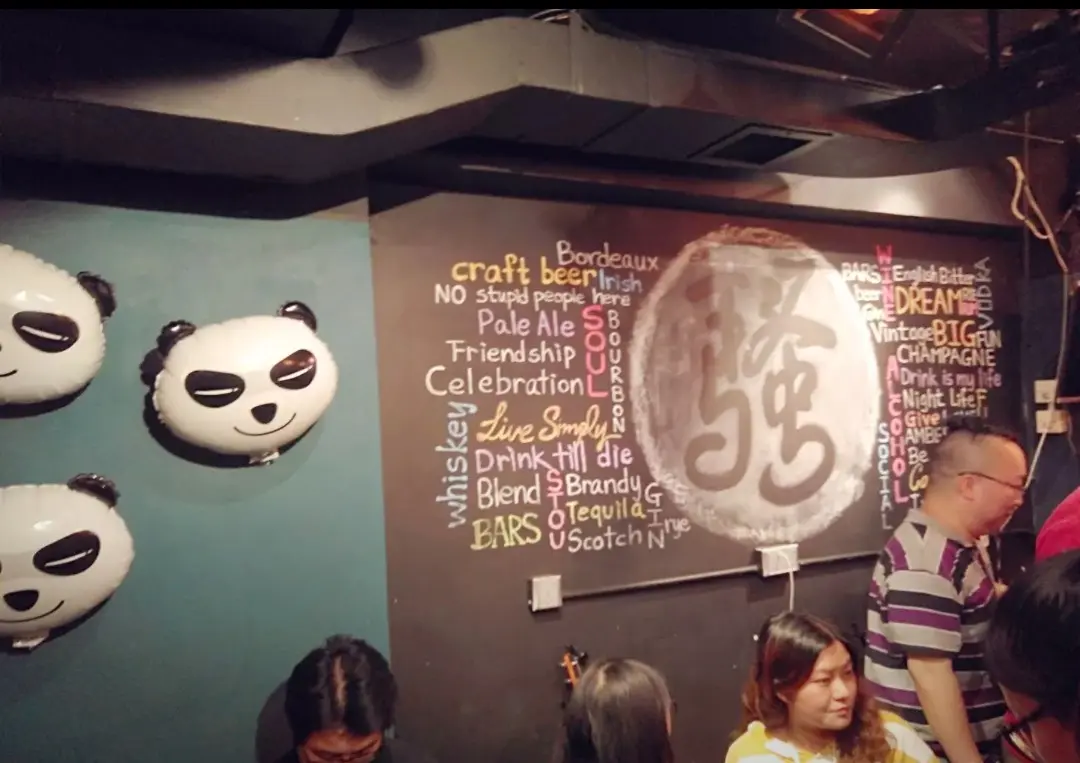 Bordeaux
craft beer Irish
NO stupid people here
Pale Ale
SOUL
BOURBON
Friendship
Celebration
whiskey
Live Simply
Drink till die
STOU
Blend Brandy
GIN
BARS Tequila
Scotch rye
骚
WINE
BARS English Bitter
VODKA
beer DREAM
Vintage BIG FUN
CHAMPAGNE
ALCOHOL
Drink is my life
Night Life
Give
SOCIAL
Be